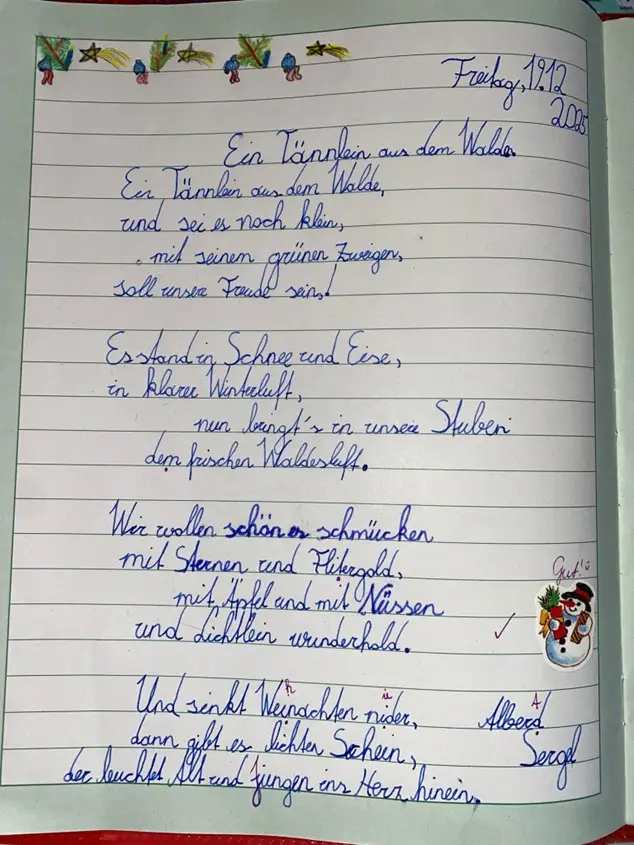 Freitag, 19.12
2025
Ein Tännlein aus dem Walde
Ein Tännlein aus dem Walde,
und sei es noch klein,
mit seinem grünen Zweigen,
soll unser Freude sein!
Es stand in Schnee und Eise,
in klarer Winterluft,
nun bringt's in unsere Stuben
dem frischen Waldesluft.
Wir wollen schön es schmücken
mit Sternen und Flitergold,
mit Äpfel und mit Nüssen
und lichtlein wunderhold.
Gut!
Und sinkt Weinachten nider,
dann gibt es lichten Schein,
der leuchtet Alt und jungen ins Herz hinein.
Alberd
Sergl